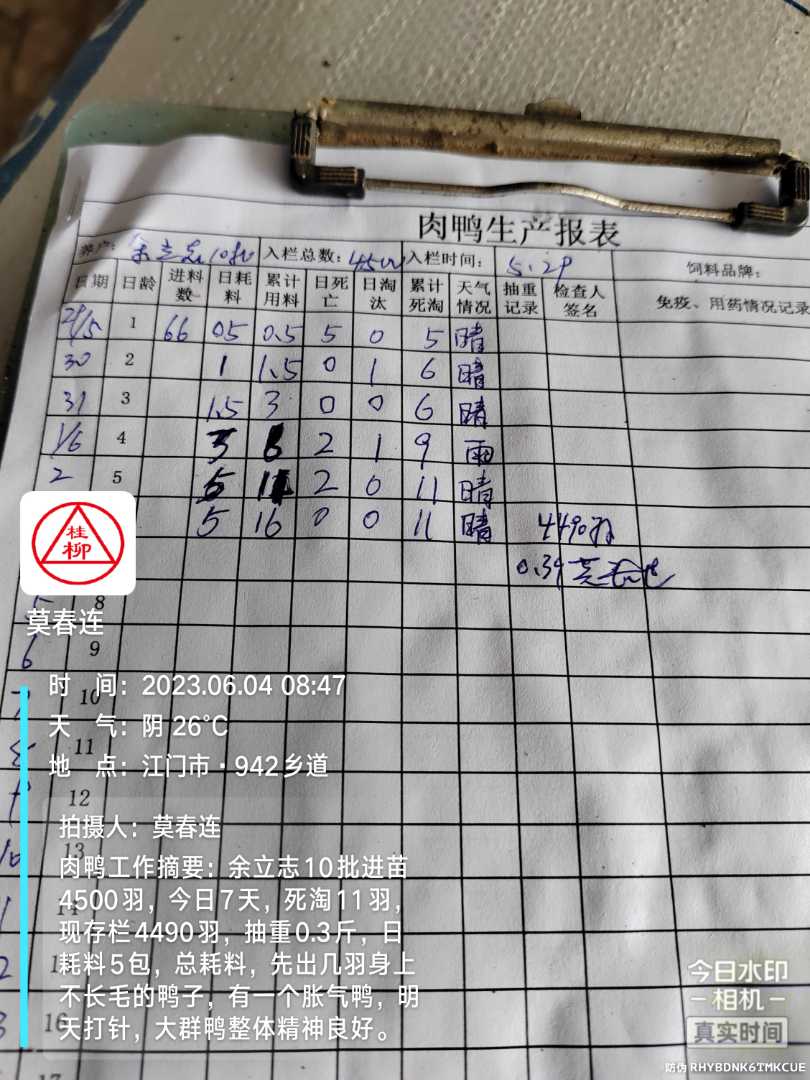 肉鸭生产报表
养户: 余立志10批 入栏总数: 4500 入栏时间: 5.29 饲料品牌:
日期 日龄 进料数 日耗料 累计用料 日死亡 日淘汰 累计死淘 天气情况 抽重记录 检查人签名 免疫、用药情况记录
29/5 1 66 0.5 0.5 5 0 5 晴
30 2 1 1.5 0 1 6 晴
31 3 1.5 3 0 0 6 晴
1/6 4 3 6 2 1 9 雨
2 5 5 11 2 0 11 晴
5 16 0 0 11 晴 4490羽
0.3斤 莫春连
8
桂柳
莫春连
6 9
7 10
11
12
10 13
14
16
17
时 间: 2023.06.04 08:47
天 气: 阴 26℃
地 点: 江门市·942乡道
拍摄人: 莫春连
肉鸭工作摘要: 余立志10批进苗
4500羽，今日7天，死淘11羽，
现存栏4490羽，抽重0.3斤，日
耗料5包，总耗料，先出几羽身上
不长毛的鸭子，有一个胀气鸭，明
天打针，大群鸭整体精神良好。
今日水印
-相机-
真实时间
防伪 RHYBDNK6TMKCUE